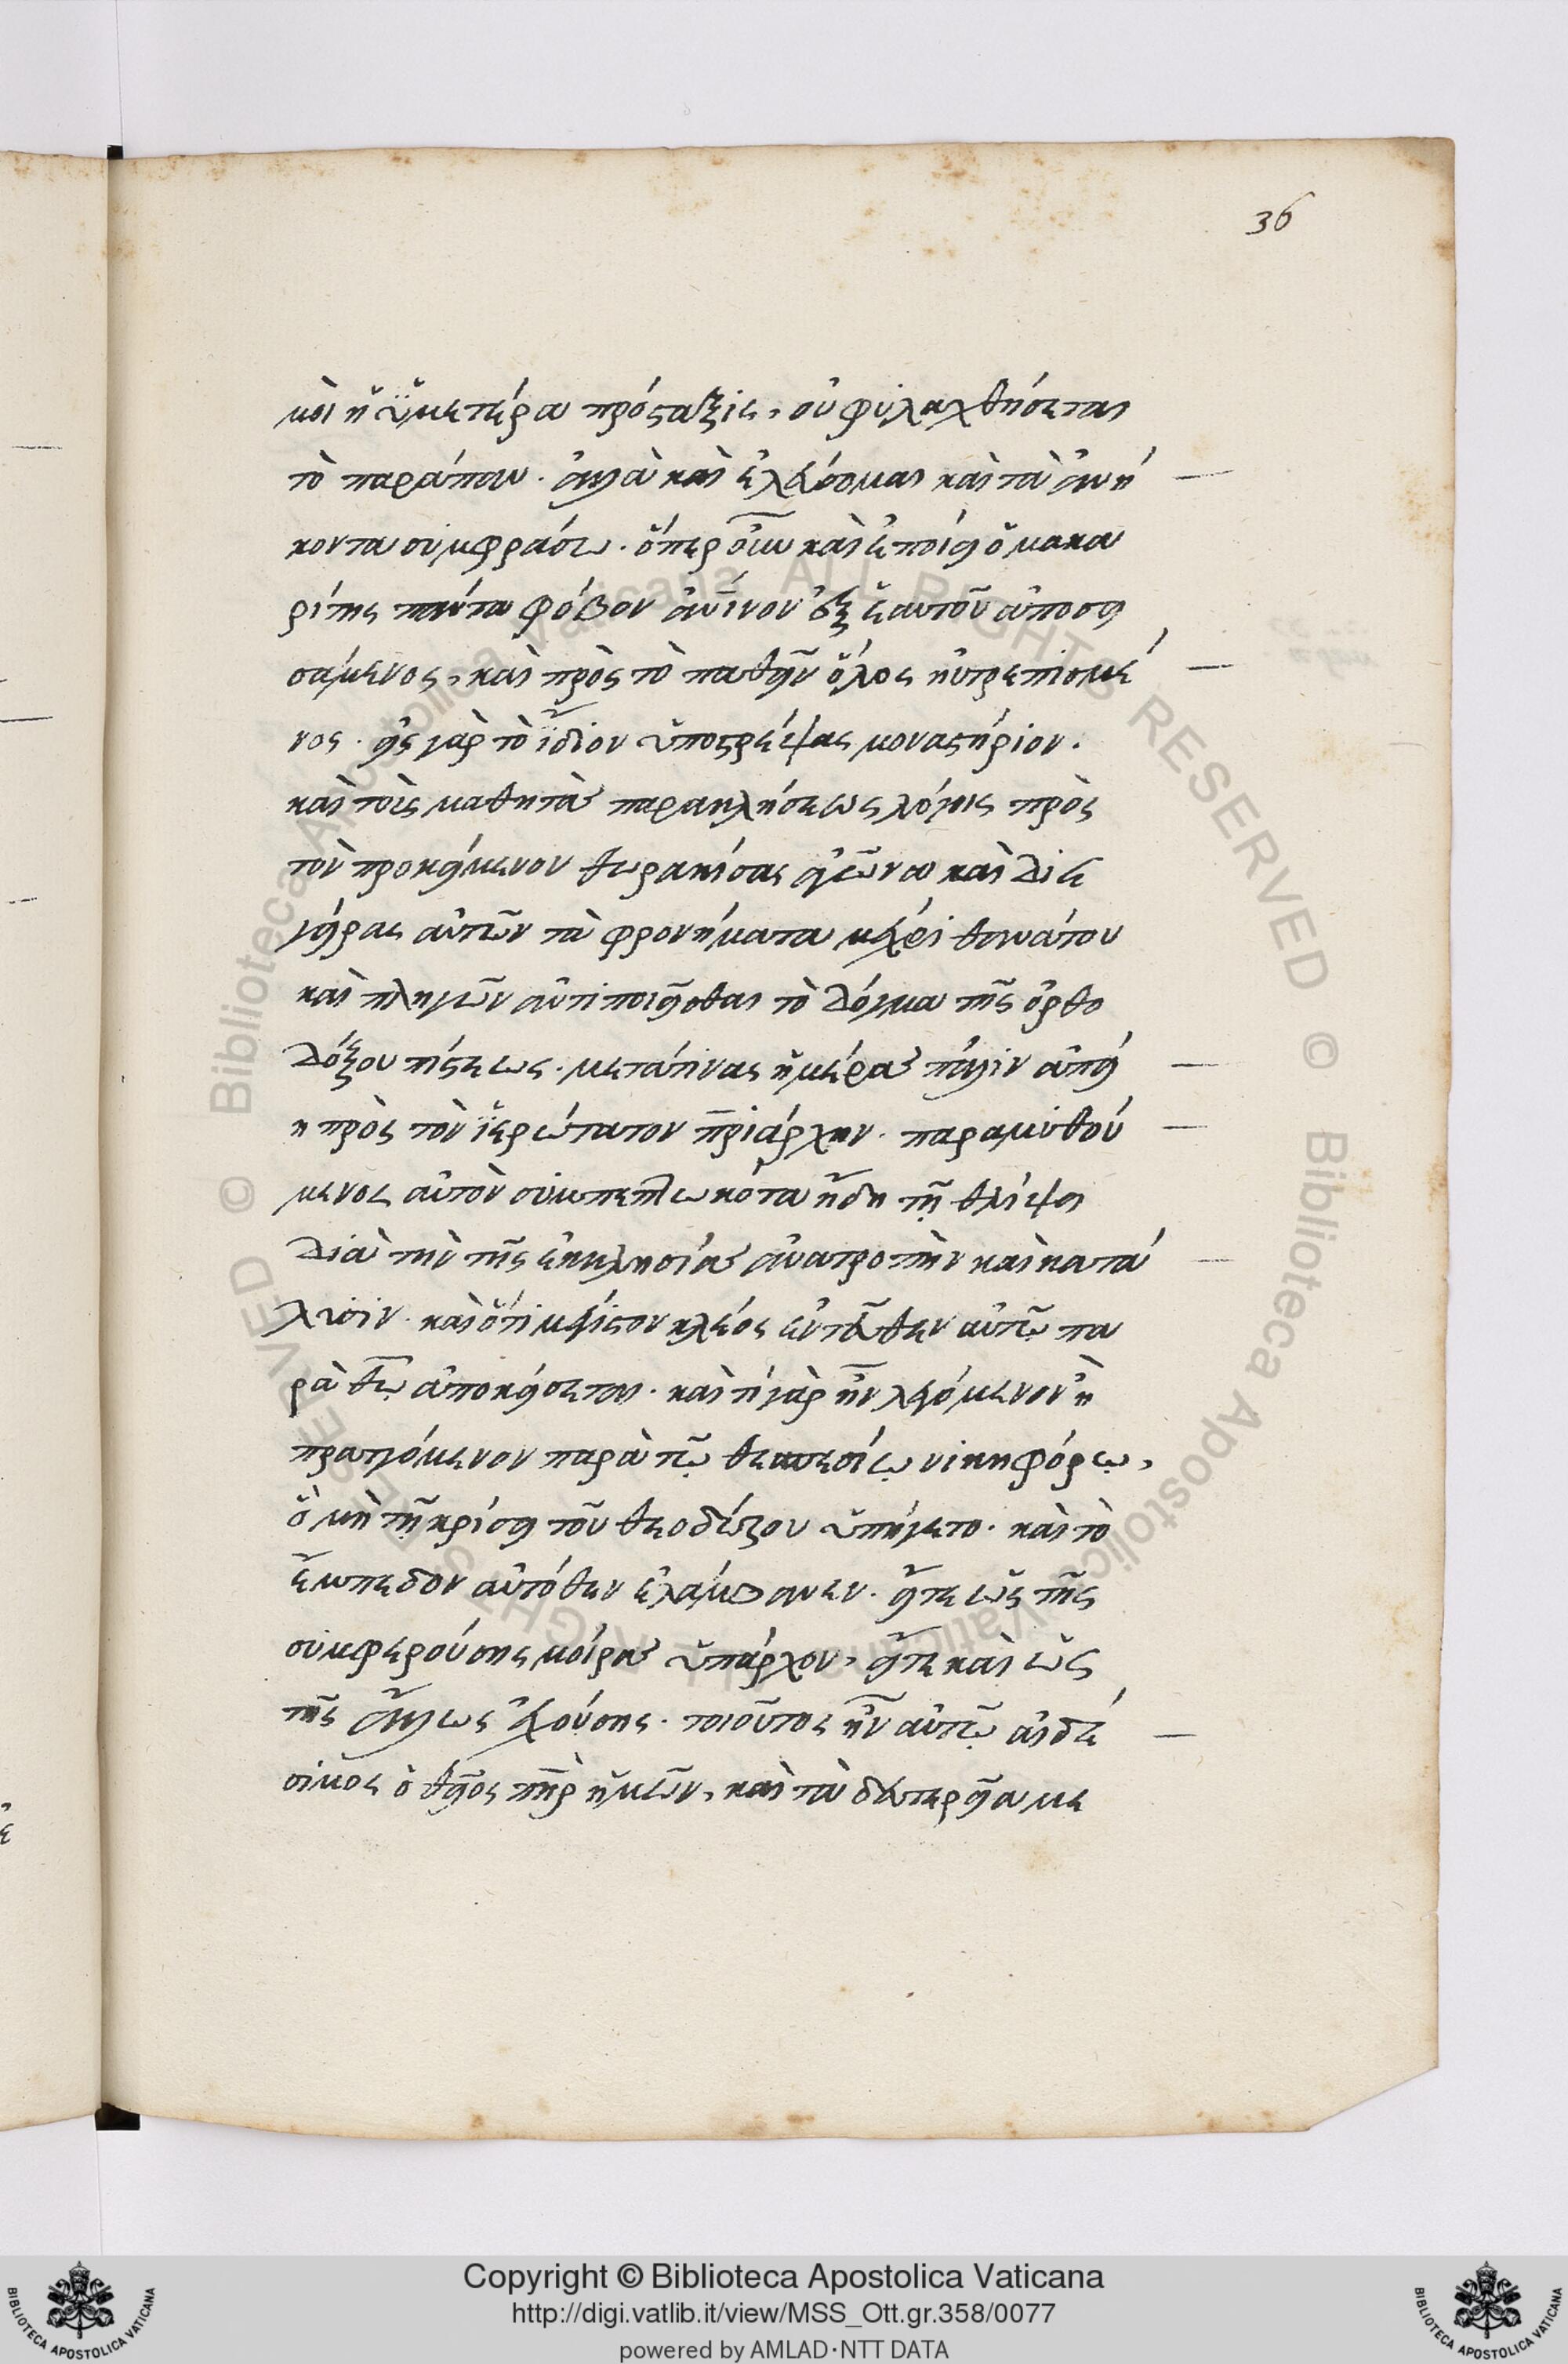 36
μοι ἡ ὑμετέρα πρόσταξις, οὐ φυλαχθήσεται
τὸ παράπαν. ἀλλὰ καὶ ἐλεύσομαι καὶ τὰ ἀνή
κοντα συμφράσω. ὅπερ οὖν καὶ ἐποίει ὁ μακα
ρίτης πάντα φόβον ἀνινον ἐξ ἑαυτοῦ ἀποσει
σάμενος, καὶ πρὸς τὸ παθεῖν ὅλος ηὐτρεπισμέ
νος. εἰς γὰρ τὸ ἴδιον ὑποστρέψας μοναστήριον.
καὶ τοὺς μαθητὰς παρακλήσεως λόγοις πρὸς
τὸν προκείμενον θωρακίσας ἀγῶνα καὶ διε
γείρας αὐτῶν τὰ φρονήματα μέχρι θανάτου
καὶ πληγῶν ἀντιποιεῖσθαι τὸ δόγμα τῆς ὀρθο
δόξου πίστεως. μετά τινας ἡμέρας πάλιν ἀπῄ
η πρὸς τὸν ἱερώτατον πριάρχην. παραμυθού
μενος αὐτὸν συμπεπτωκότα ἤδη τῇ θλίψει
διὰ τὴν τῆς ἐκκλησίας ἀνατροπὴν καὶ κατά
λυσιν. καὶ ὅτι μέγιστον κλέος ἐντεῦθεν αὐτῷ πα
ρὰ θῶ ἀποκείσεται. καὶ τί γὰρ ἦν λεγόμενον ἢ
πραττόμενον παρὰ τῷ θεσπεσίῳ νικηφόρῳ,
ὃ μὴ τῇ κρίσει τοῦ θεοδώρου ὑπήγετο. καὶ τὸ
ἔμπεδον αὐτόθεν ἐλάμβανεν. εἴτε ὡς τῆς
συμφερούσης μοίρας ὑπάρχον, εἴτε καὶ ὡς
τῆς ἄλλως ἐχούσης. τοιοῦτος ἦν αὐτῷ αἰδέ
σιμος ὁ θεῖος πὴρ ἡμῶν, καὶ τὰ δευτερεῖα με
Copyright © Biblioteca Apostolica Vaticana
http://digi.vatlib.it/view/MSS_Ott.gr.358/0077
powered by AMLAD·NTT DATA